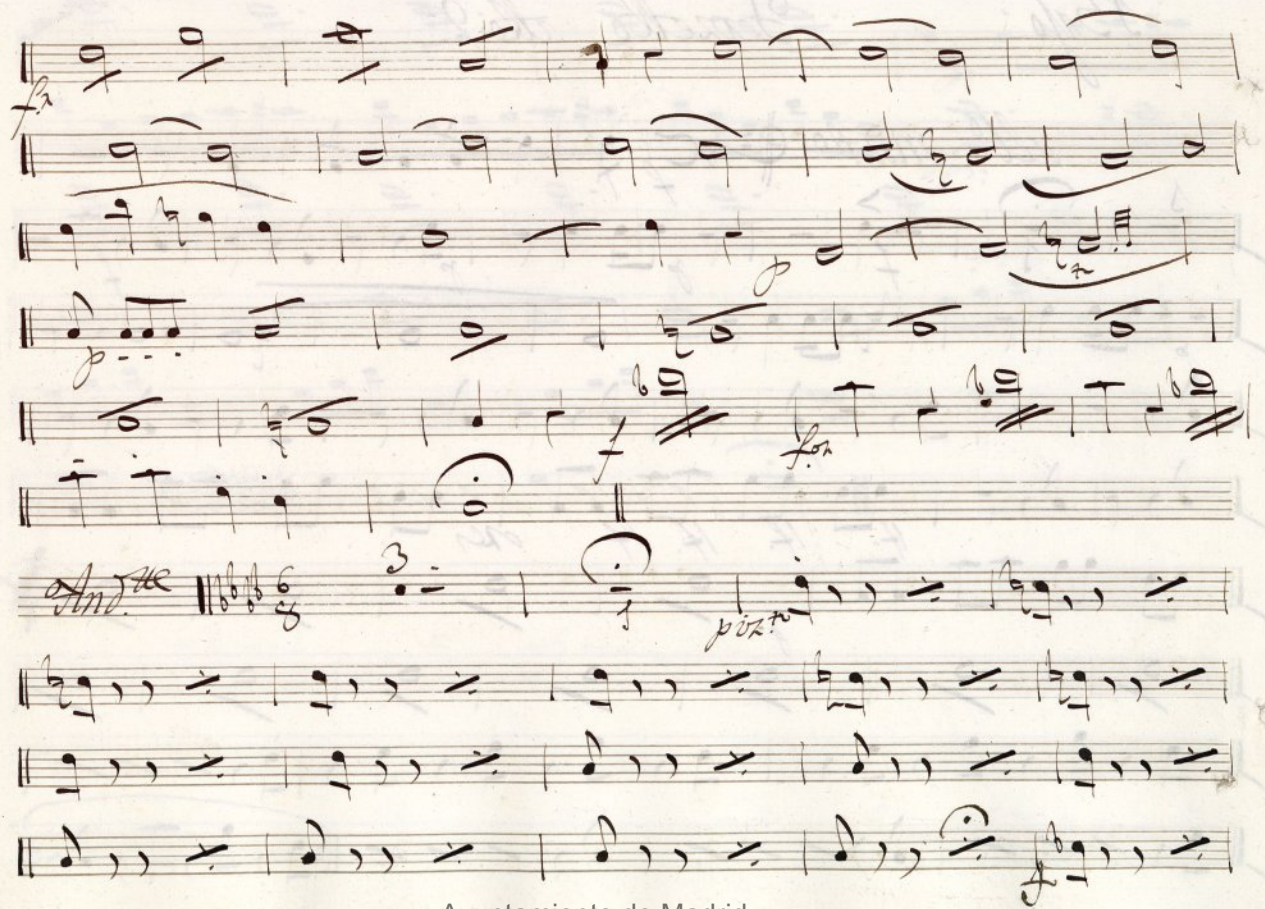 p
p
f for
And.tte 6 3
8 1
piz.to
f
Ayuntamiento de Madrid